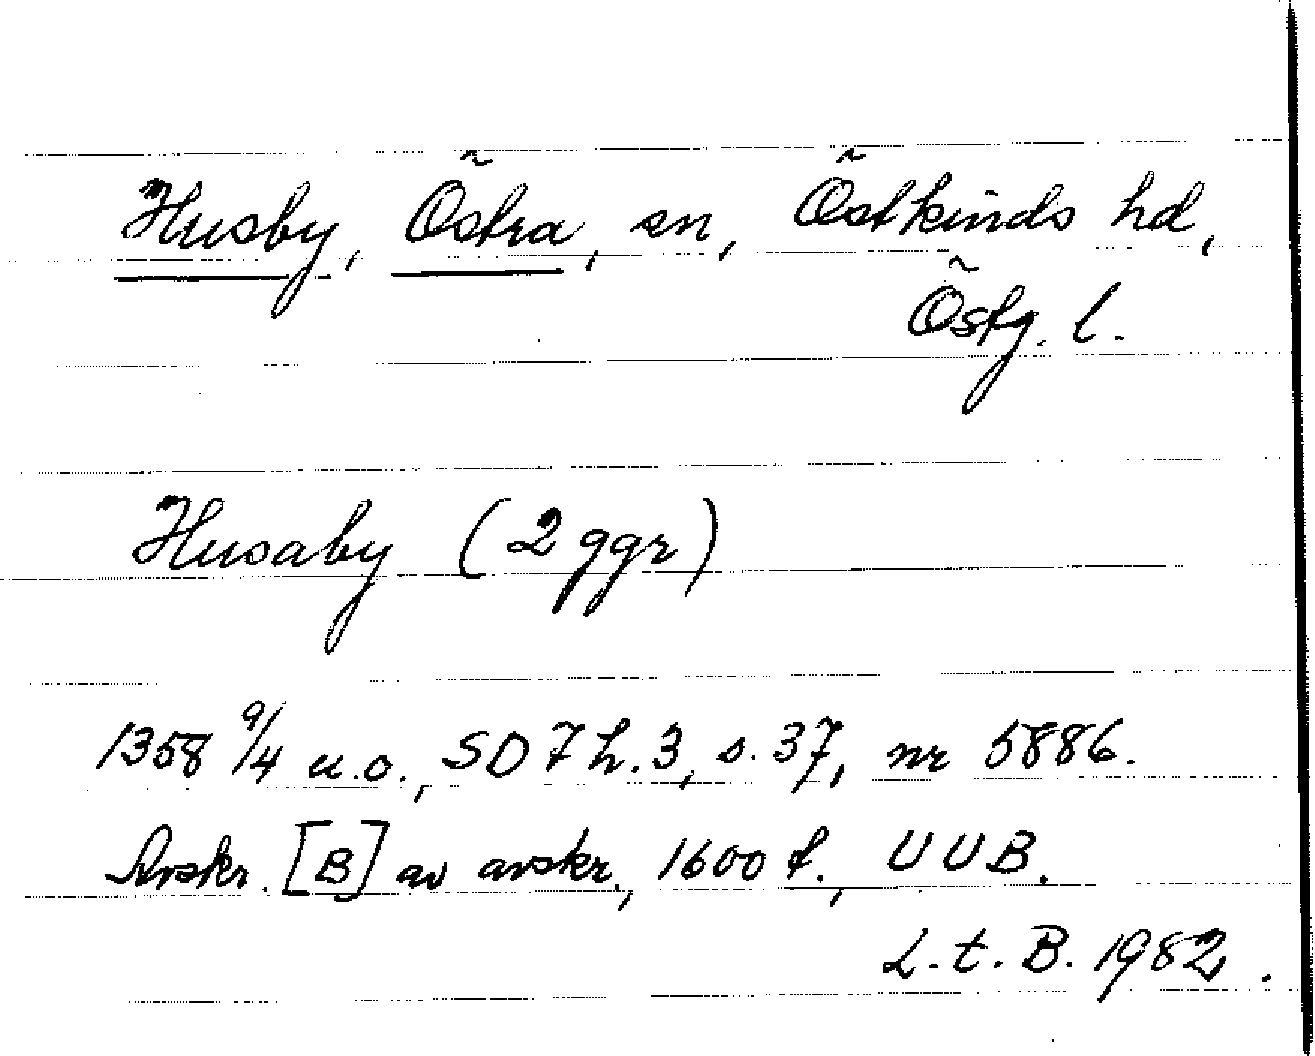 Husby, Östra, sn, Östkinds hd,
Östg. l.
Husaby (2 ggr)
1358 9/4 u.o., SD 7 h. 3, s. 37, nr 5886.
Avskr. [B] av avskr., 1600 t., UUB.
L. t. B. 1982.